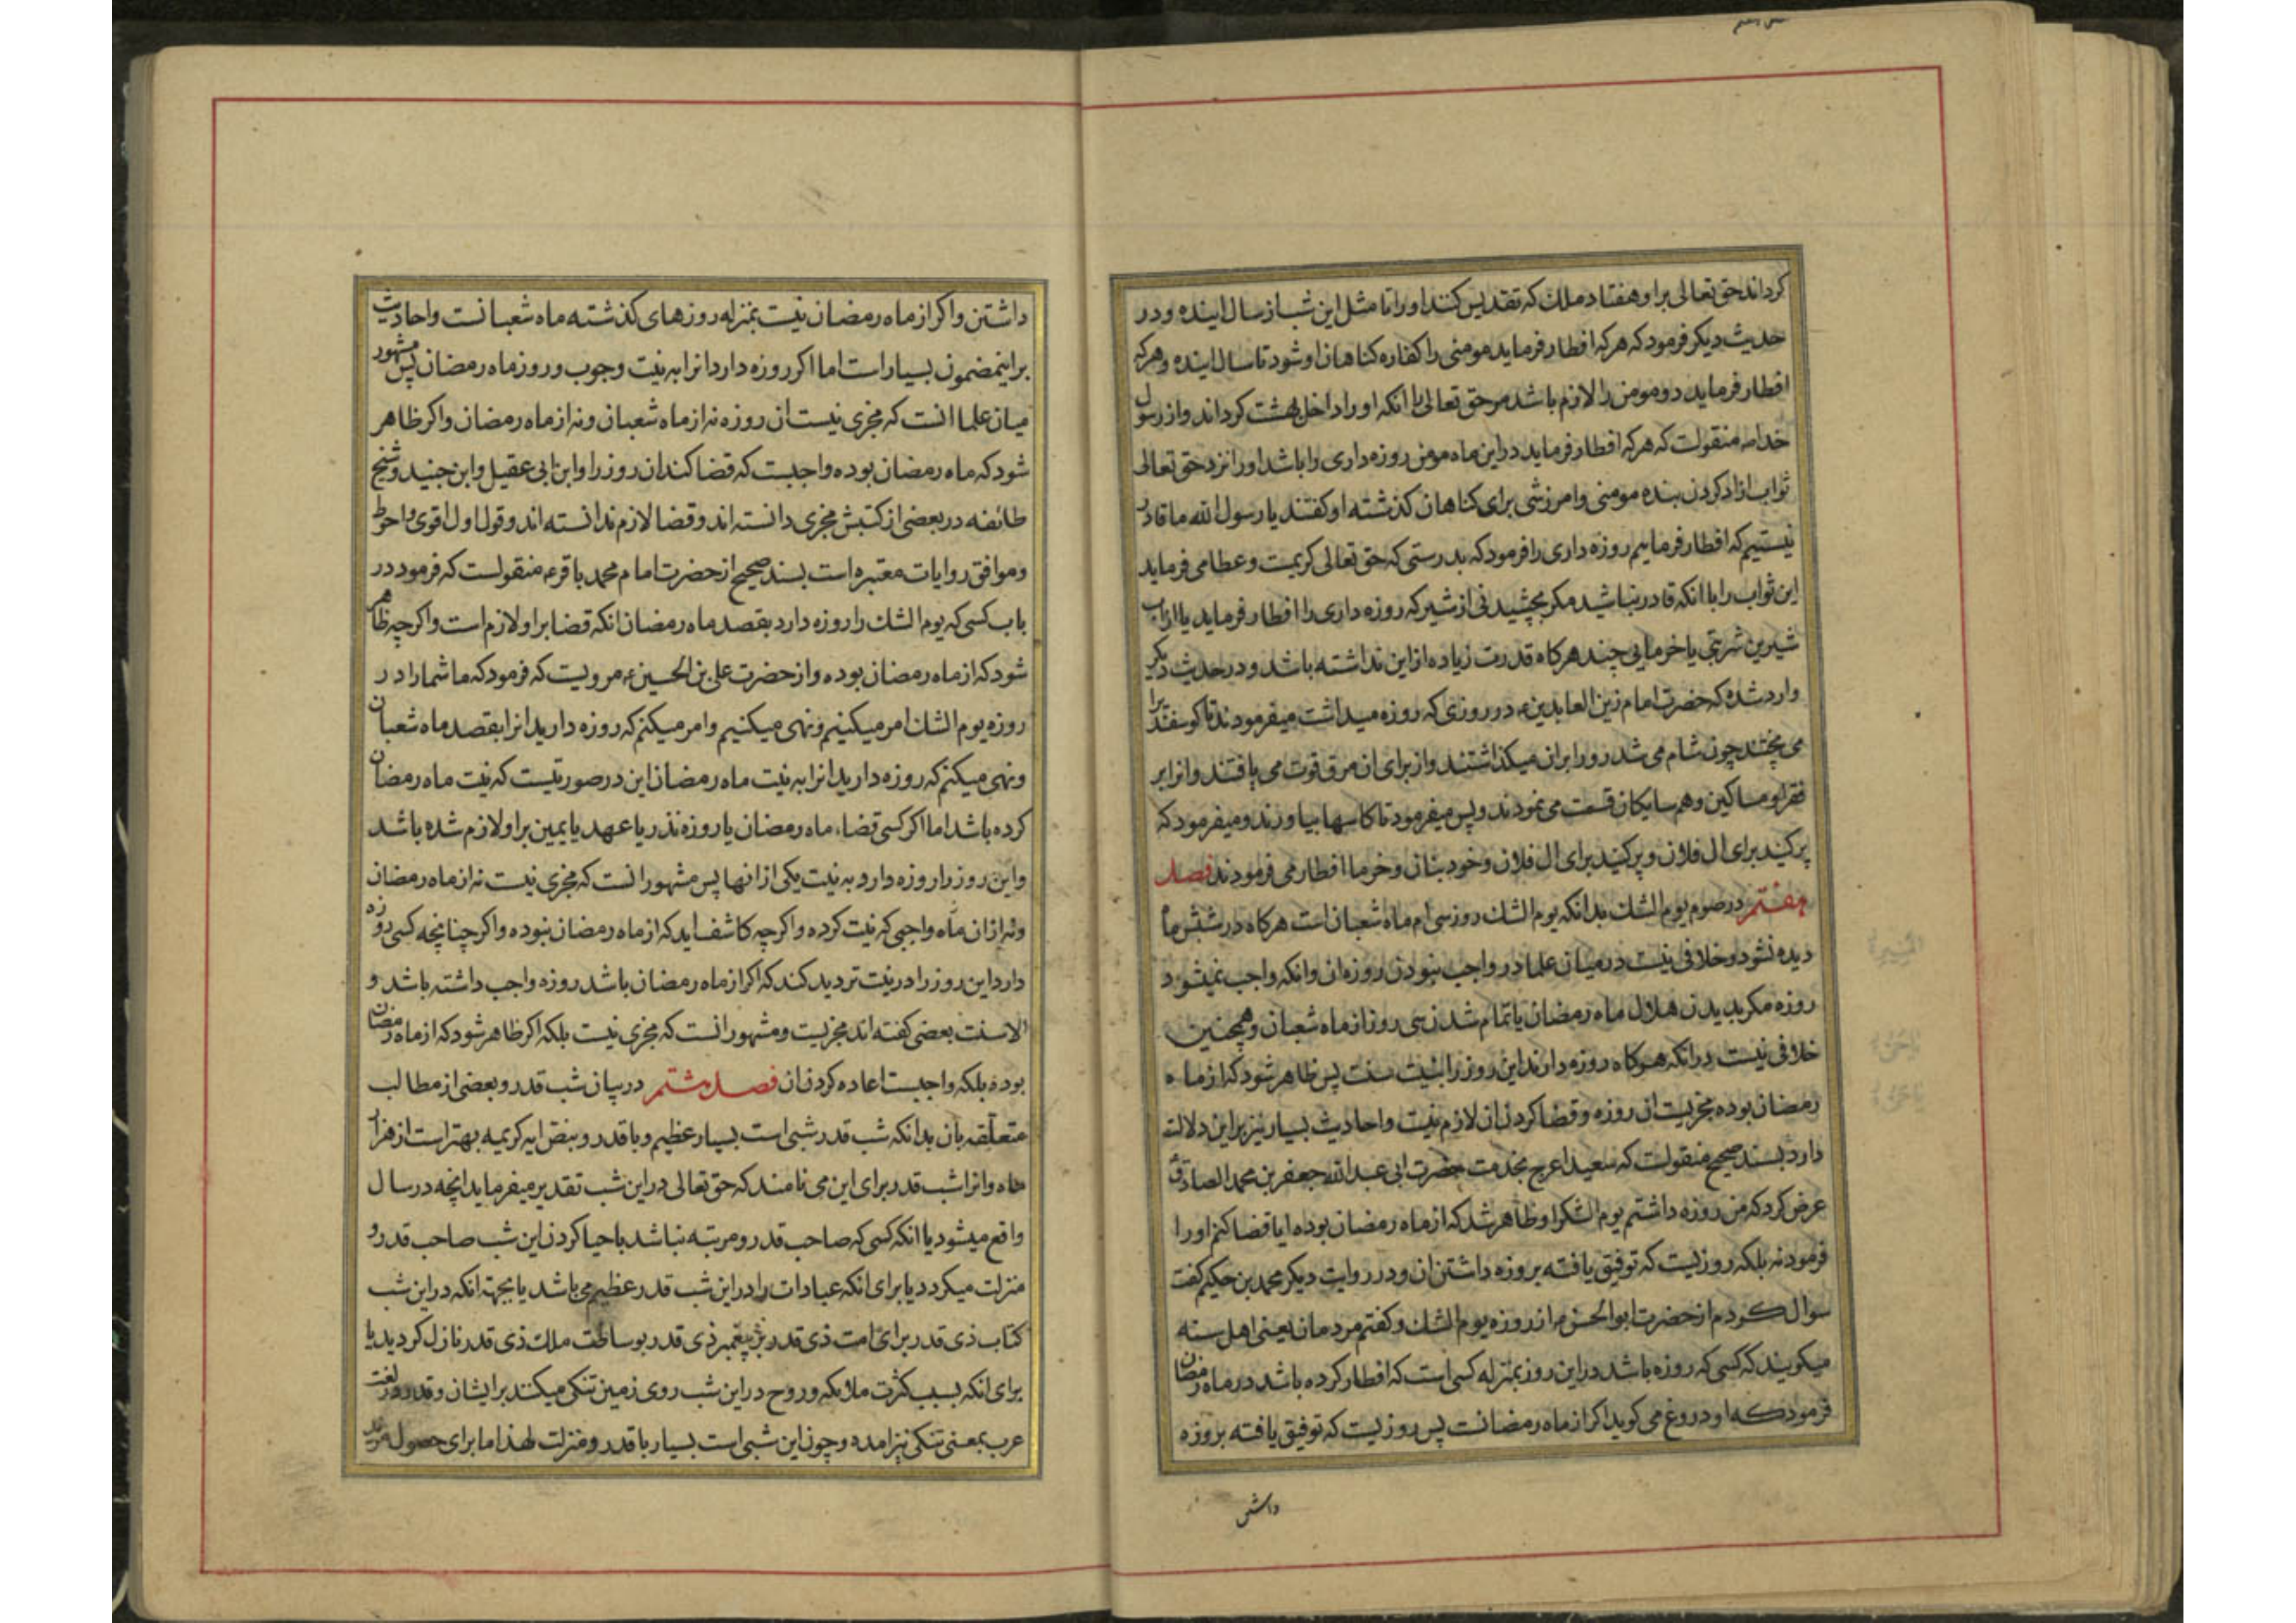 گرداند حق تعالی براو هفتاد ملك که تقدیس کنند او را تا مثل این شب از سال اینده و در
حدیث دیکر فرمود که هرکه افطار فرماید مومنی را کفاره کناهان او شود تا سال اینده و هرکه
افطار فرماید دو مومن را لازم باشد مر حق تعالی را انکه او را داخل بهشت کرداند و از رسول
خدا ص منقولست که هرکه افطار فرماید در این ماه مومن روزه داری را باشد او را نزد حق تعالی
ثواب ازاد کردن بنده مومنی و امرزشی برای کناهان کذشته او کفتند یا رسول الله ما قادر
نیستیم که افطار فرماییم روزه داری را فرمود که بدرستی که حق تعالی کریمست و عطا می فرماید
این ثواب را با انکه قادر نباشد مکر بچشیدنی از شیر که روزه داری را افطار فرماید یا از اب
شیرین شربتی یا خرمایی چند هرکاه قدرت زیاده از این نداشته باشد و در حدیث دیکر
وارد شده که حضرت امام زین العابدین ع در روزی که روزه میداشت میفرمودند تا کوسفند را
می پختند چون شام می شد رو را بران میکذاشتند و از برای ان مرق قوت می یافتند و انرا بر
فقرا و مساکین و همسایکان قسمت می نمودند و پس میفرمود تا کاسها بیاورند و میفرمود که
پر کنید برای ال فلان و پر کنید برای ال فلان و خود بنان و خرما افطار می فرمودند فصل
هفتم در صوم یوم الشك بدانکه یوم الشك روز سی ام ماه شعبان است هرکاه در شبش ماه
دیده نشود و خلافی نیست در میان علما در واجب نبودن روزه ان و انکه واجب نمیشود
روزه مکر بدیدن هلال ماه رمضان یا تمام شدن سی روز از ماه شعبان و همچنین
خلافی نیست در انکه هرکاه روزه دارند این روز را بنیت سنت پس ظاهر شود که از ماه
رمضان بوده مجزیست ان روزه و قضا کردن ان لازم نیست و احادیث بسیار نیز بر این دلالت
دارد بسند صحیح منقولست که سعید اعرج بخدمت حضرت ابی عبدالله جعفر بن محمد الصادق
عرض کرد که من روزه داشتم یوم الشك را و ظاهر شد که از ماه رمضان بوده ایا قضا کنم او را
فرمود نه بلکه روزیست که توفیق یافته بروزه داشتن ان و در روایت دیکر محمد بن حکیم کفت
سوال کردم از حضرت ابو الحسن ع از روزه یوم الشك و کفتم مردمان یعنی اهل سنه
میکویند که کسی که روزه باشد در این روز بمنزله کسی است که افطار کرده باشد در ماه رمضان
فرمود که او دروغ می کوید اکر از ماه رمضانست پس روزیست که توفیق یافته بروزه
داشتن
داشتن و اکر از ماه رمضان نیست بمنزله روزهای کذشته ماه شعبانست و احادیث
بر اینمضمون بسیار است اما اکر روزه دارد انرا به نیت وجوب و روز ماه رمضان پس مشهور
میان علما انست که مجزی نیست ان روزه نه از ماه شعبان و نه از ماه رمضان و اکر ظاهر
شود که ماه رمضان بوده واجبست که قضا کند ان روز را و ابن ابی عقیل و ابن جنید و شیخ
طائفه در بعضی از کتبش مجزی دانسته اند و قضا لازم ندانسته اند و قول اول اقوی و احوط
و موافق روایات معتبره است بسند صحیح از حضرت امام محمد باقر ع منقولست که فرمود در
باب کسی که یوم الشك را روزه دارد بقصد ماه رمضان انکه قضا بر او لازم است و اکرچه ظاهر
شود که از ماه رمضان بوده و از حضرت علی بن الحسین ع مرویست که فرمود که ما شما را در
روزه یوم الشك امر میکنیم و نهی میکنیم و امر میکنم که روزه دارید انرا بقصد ماه شعبان
و نهی میکنم که روزه دارید انرا به نیت ماه رمضان این در صورتیست که نیت ماه رمضان
کرده باشد اما اکر کسی قضاء ماه رمضان یا روزه نذر یا عهد یا یمین بر او لازم شده باشد
و این روز را روزه دارد به نیت یکی از انها پس مشهور انست که مجزی نیست نه از ماه رمضان
و نه از ان ماه واجبی که نیت کرده و اکرچه کاشف اید که از ماه رمضان نبوده و اکر چنانچه کسی روزه
دارد این روز را در نیت تردید کند که اکر از ماه رمضان باشد روزه واجب داشته باشد و
الا سنت بعضی کفته اند مجزیست و مشهور انست که مجزی نیست بلکه اکر ظاهر شود که از ماه رمضان
بوده بلکه واجبست اعاده کردن ان فصل هشتم در بیان شب قدر و بعضی از مطالب
متعلقه بآن بدانکه شب قدر شبی است بسیار عظیم و با قدر و بنص ایه کریمه بهتر است از هزار
ماه و انرا شب قدر برای این می نامند که حق تعالی در این شب تقدیر میفرماید انچه در سال
واقع میشود یا انکه کسی که صاحب قدر و مرتبه نباشد باحیا کردن این شب صاحب قدر و
منزلت میکردد یا برای انکه عبادات را در این شب قدر عظیم می باشد یا بجهة انکه در این شب
کتاب ذی قدر برای امت ذی قدر بر پیغمبر ذی قدر بوساطت ملك ذی قدر نازل کردید یا
برای انکه بسبب کثرت ملائکه و روح در این شب روی زمین تنکی میکند بر ایشان و قدر در لغت
عرب بمعنی تنکی نیز امده و چون این شبی است بسیار با قدر و منزلت لهذا ما برای حصول